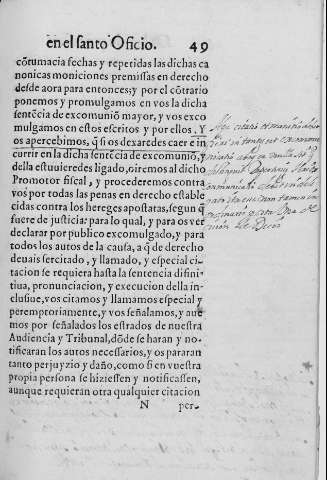 en el santo Oficio. 49
cõtumacia fechas y repetidas las dichas ca
nonicas moniciones premissas en derecho
desde aora para entonces; y por el cõtrario
ponemos y promulgamos en vos la dicha
sentẽcia de excomuniõ mayor, y vos exco
mulgamos en estos escritos y por ellos. Y
os apercebimos, q̃ si os dexaredes caer e in
currir en la dicha sentẽcia de excomuniõ, y
della estuuieredes ligado, oiremos al dicho
Promotor fiscal, y procederemos contra
vos por todas las penas en derecho estable
cidas contra los hereges apostatas, segun q̃
fuere de justicia: para lo qual, y para os ver
declarar por publico excomulgado, y para
todos los autos de la causa, a q̃ de derecho
deuais ser citado, y llamado, y especial ci-
tacion se requiera hasta la sentencia difini
tiua, pronunciacion, y execucion della in-
clusiue, vos citamos y llamamos especial y
peremptoriamente, y vos señalamos, y aue
mos por señalados los estrados de nuestra
Audiencia y Tribunal, dõde se haran y no-
tificaran los autos necessarios, y os pararan
tanto perjuyzio y daño, como si en vuestra
propia persona se hiziessen y notificassen,
aunque requieran otra qualquier citacion
N per-